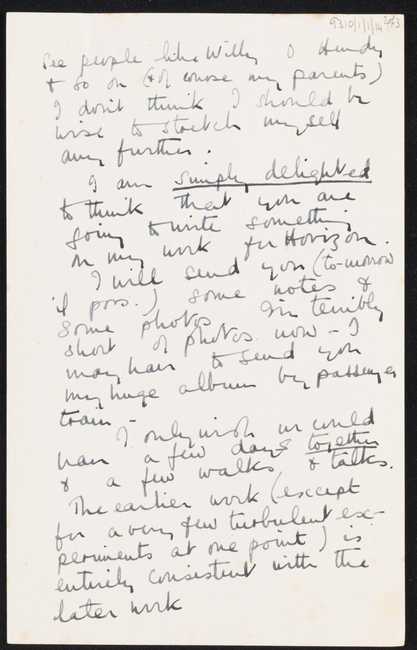 9310/1/1/14 2/3
See people like Willy & Hendy
& so on (& of course my parents)
I don't think I should be
wise to stretch myself
any further.
I am simply delighted
to think that you are
going to write something
on my work for Horizon.
I will send you (to-morrow
if poss.) some notes &
some photos I'm terribly
short of photos now - I
may have to send you
my huge album by passenger
train -
I only wish we could
have a few days together
& a few walks & talks.
The earlier work (except
for a very few turbulent ex-
periments at one point) is
entirely consistent with the
later work